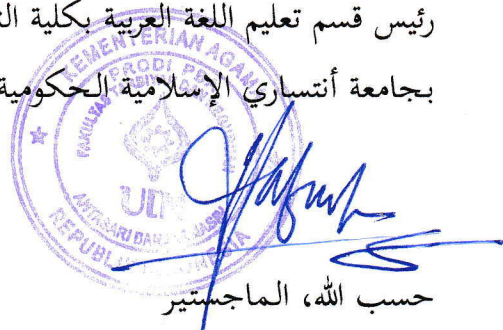 رئيس قسم تعليم اللغة العربية بكلية
بجامعة أنتساري الإسلامية الحكومية
KEMENTERIAN AGAMA
PRODI
FAKULTAS TARBIYAH
UIN
ANTASARI BANJARMASIN
REPUBLIK INDONESIA
حسب الله، الماجستير